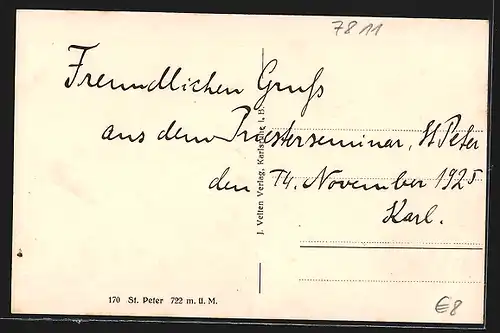 7811
Freundlichen Gruß
aus dem Priesterseminar, St Peter
den 14. November 1925
Karl.
J. Velten Verlag, Karlsruhe i. B.
170 St. Peter 722 m. ü. M.
€8